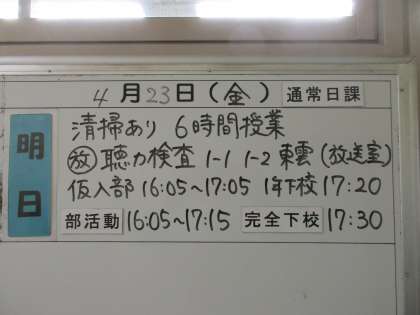 4月23日(金) 通常日課
明日
清掃あり 6時間授業
放 聴力検査 1-1 1-2 東雲 (放送室)
仮入部 16:05〜17:05 1年下校 17:20
部活動 16:05〜17:15 完全下校 17:30